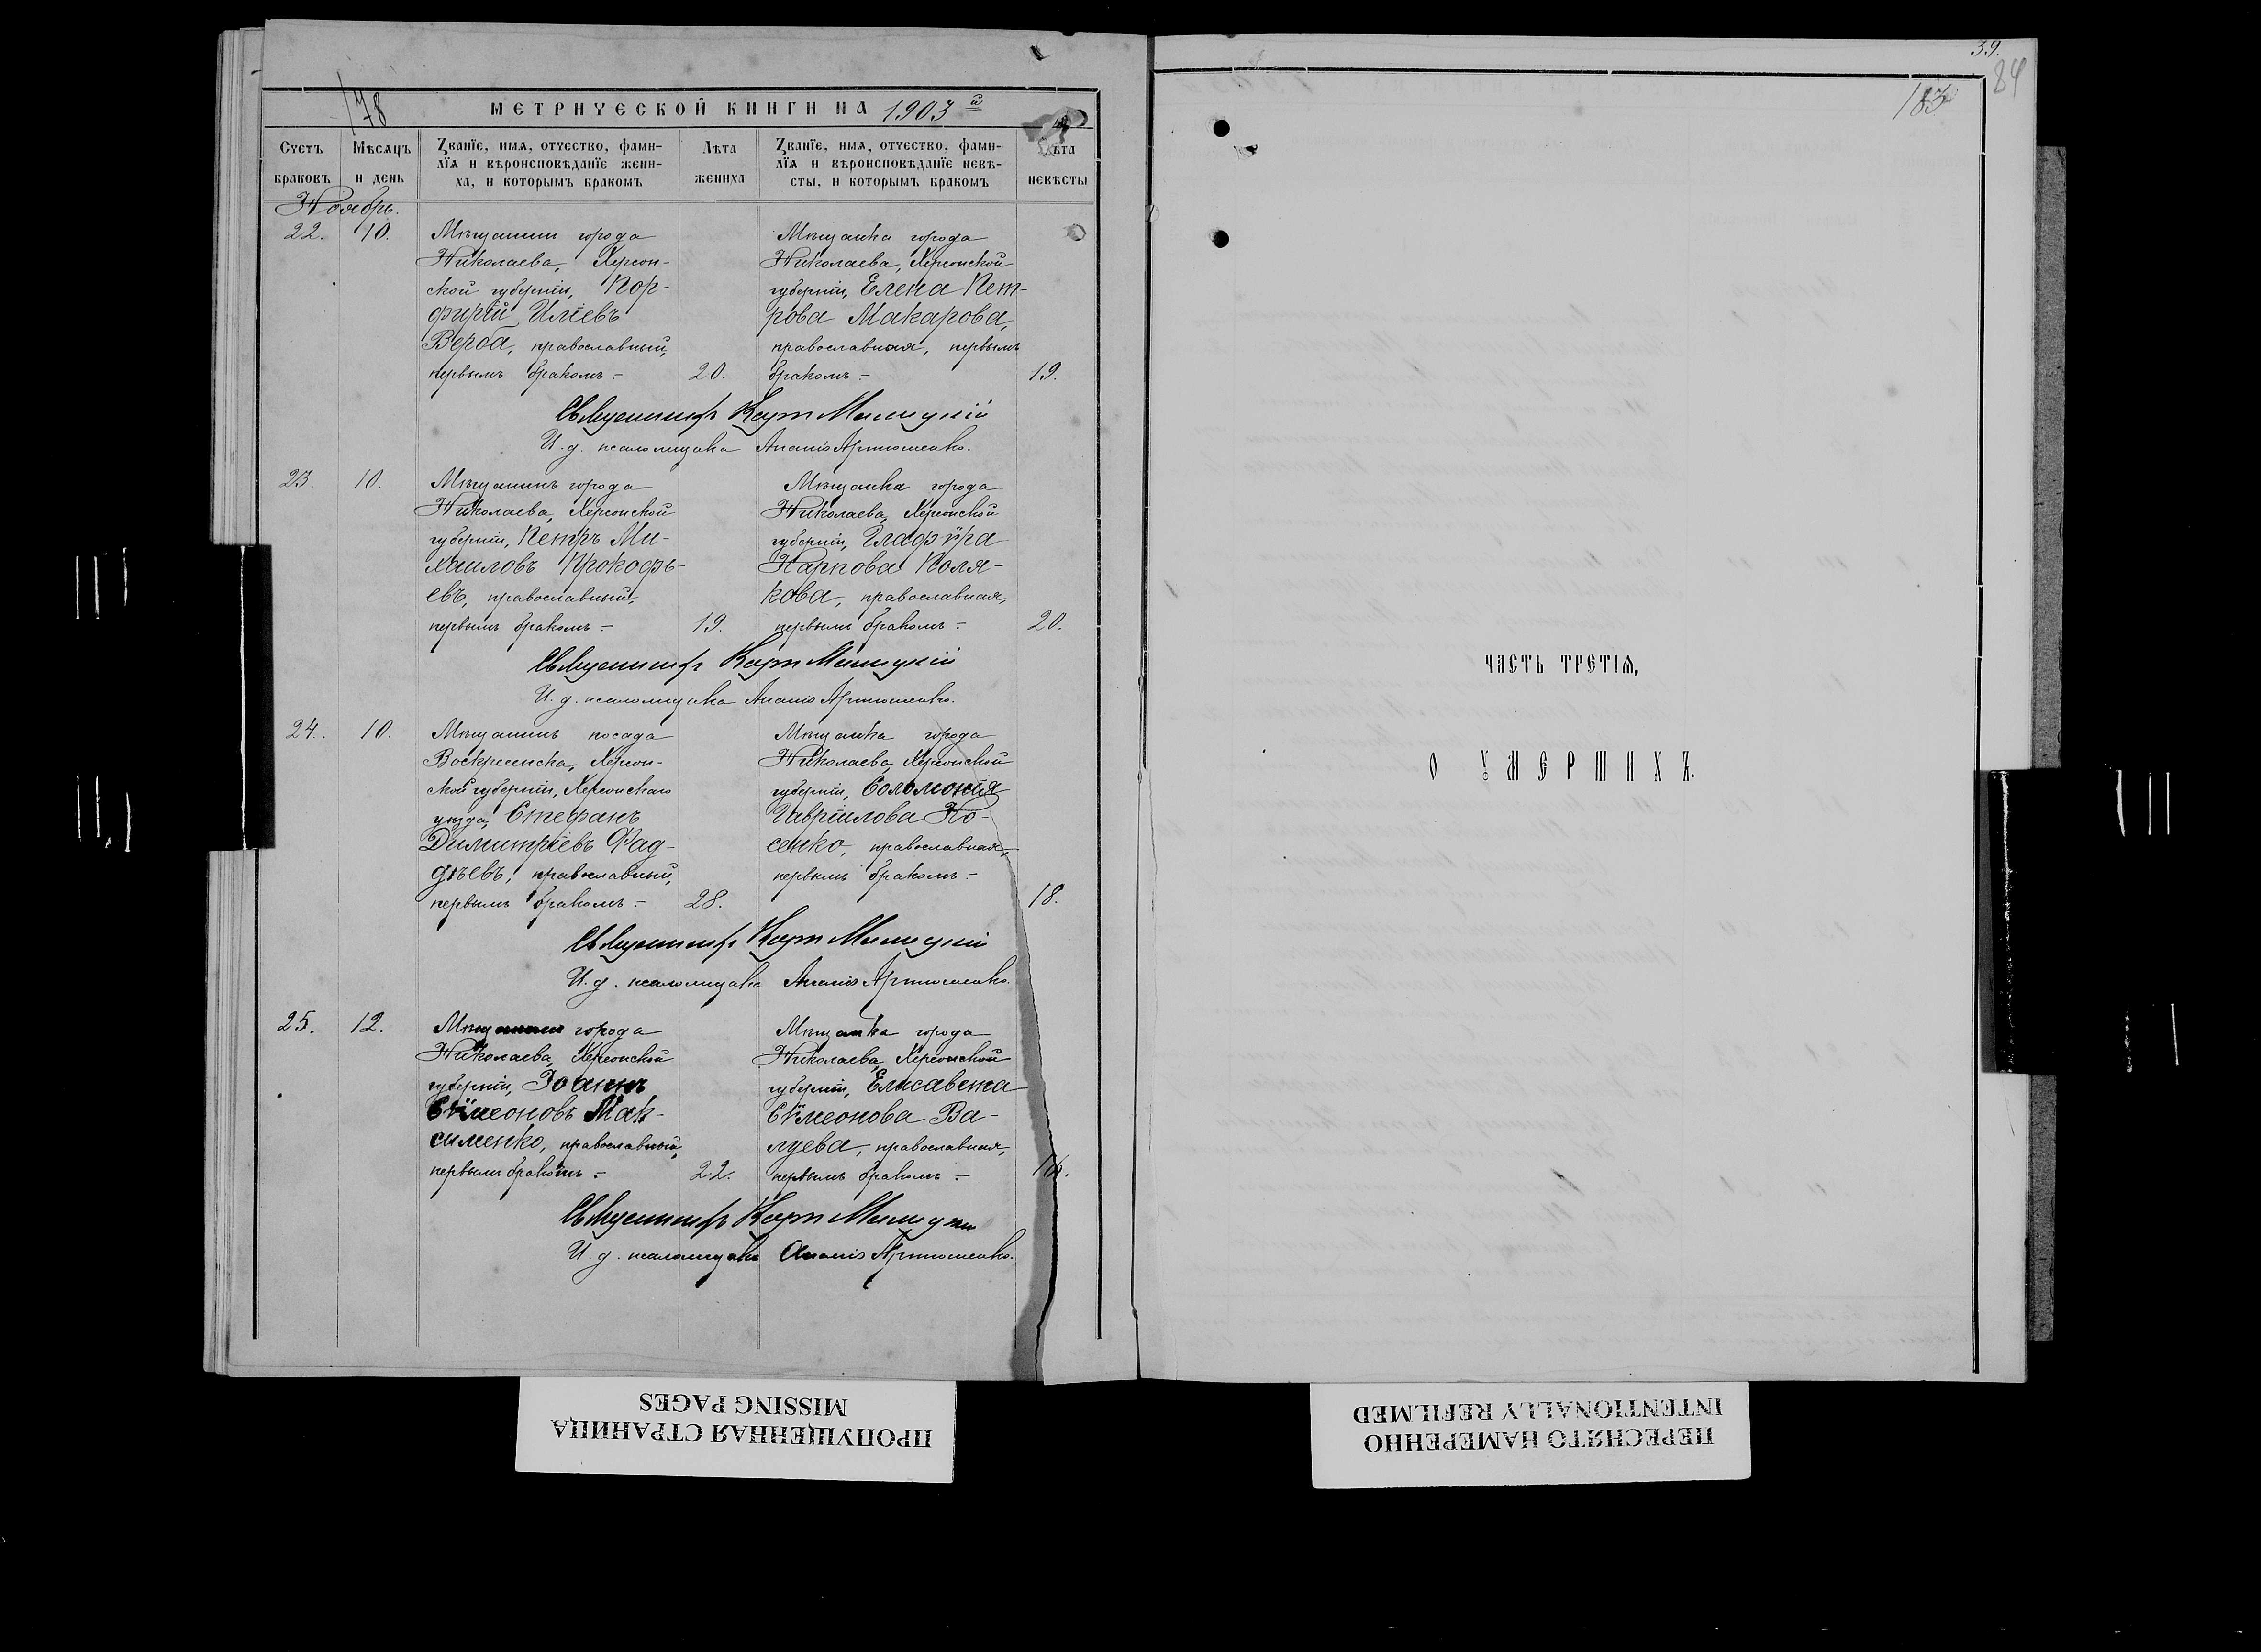 178
МЕТРИЧЕСКОЙ КНИГИ НА 1903й
Счетъ браковъ
Мѣсяцъ и день
Званїе, имя, отчество, фами-
лїя и вѣроисповѣданїе жени-
ха, и которымъ бракомъ
Лѣта жениха
Званїе, имя, отчество, фами-
лїя и вѣроисповѣданїе невѣ-
сты, и которымъ бракомъ
Лѣта невѣсты
Ноябрь.
22. 10.
Мѣщанинъ города
Николаева, Херсон-
ской губернiи, Пор-
фирiй Илiевъ
Верба, православный,
первымъ бракомъ – 20.
Мѣщанка города
Николаева, Херсонской
губернiи, Елена Пет-
рова Макарова,
православная, первымъ
бракомъ – 19.
Священникъ Милицкiй
И. д. псаломщика Ананiй Артюшенко.
23. 10.
Мѣщанинъ города
Николаева, Херсонской
губернiи, Петръ Ми-
хаиловъ Прокофь-
евъ, православный,
первымъ бракомъ – 19.
Мѣщанка города
Николаева, Херсонской
губернiи, Глафѵра
Карпова Поля-
кова, православная,
первымъ бракомъ – 20.
Священникъ Милицкiй
И. д. псаломщика Ананiй Артюшенко.
24. 10.
Мѣщанинъ посада
Воскресенска, Херсон-
ской губернiи, Херсонскаго
уѣзда, Стефанъ
Димитрiевъ Фад-
дѣевъ, православный,
первымъ бракомъ – 28.
Мѣщанка города
Николаева, Херсонской
губернiи, Соломонiя
Гаврiилова Но-
сенко, православная,
первымъ бракомъ –
18.
Священникъ Милицкiй
И. д. псаломщика Ананiй Артюшенко.
25. 12.
Мѣщанинъ города
Николаева, Херсонской
губернiи, Iоаннъ
Сѵмеоновъ Мак-
сименко, православный,
первымъ бракомъ – 22.
Мѣщанка города
Николаева, Херсонской
губернiи, Елисавета
Сѵмеонова Ва-
луева, православная,
первымъ бракомъ –
Священникъ Милицкiй
И. д. псаломщика Ананiй Артюшенко.
39.
84
183
ЧАСТЬ ТРЕТIЯ,
О УМЕРШИХЪ.
ПРОПУЩЕННАЯ СТРАНИЦА
MISSING PAGES
ПЕРЕСНЯТО НАМЕРЕННО
INTENTIONALLY REFILMED